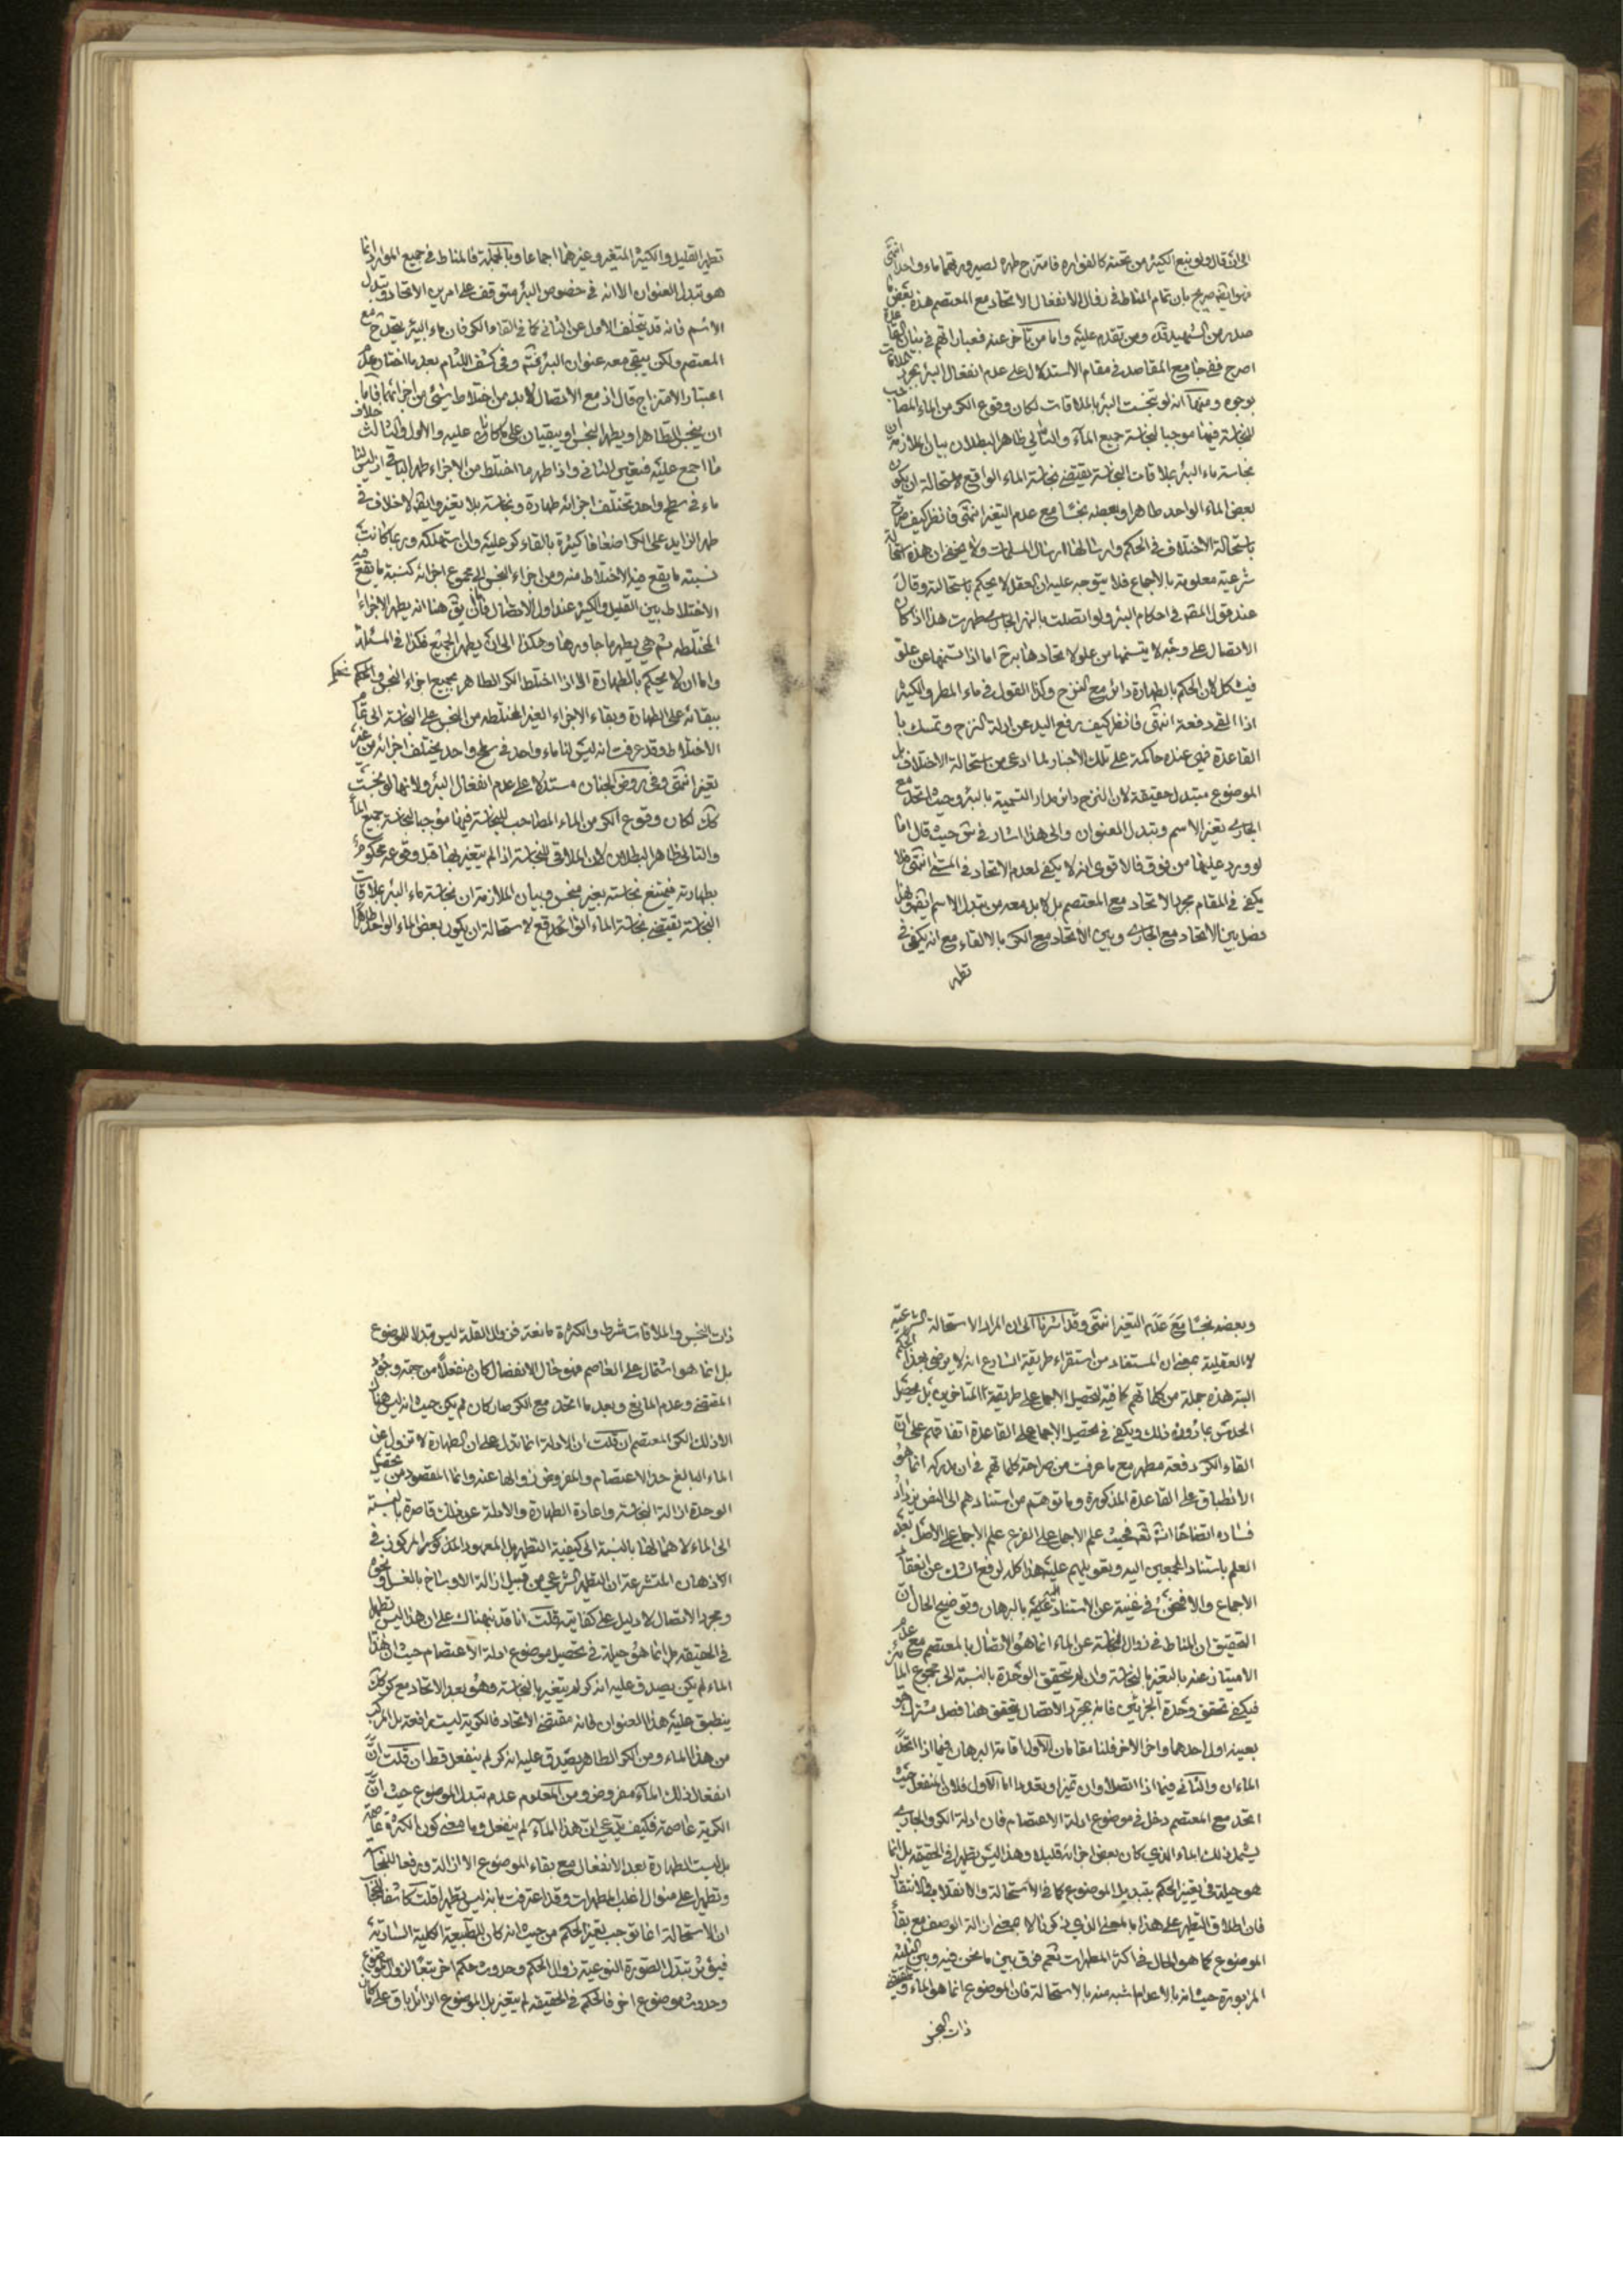 الی ان قال ولو نبع الكثير من تحته كالفوارة فامتزج طهره لصيرورتهما ماء واحدا انتهى
صريح بان تمام المناط في زوال الانفعال الاتحاد مع المعتصم هذه بعض ما
صدر من الشهيد قده ومن تقدم عليه واما من تأخر عنه فعباراتهم في بيان القاعدة
اصرح ففي جامع المقاصد في مقام الاستدلال على عدم انفعال البئر بمجرد الملاقات
بوجوه ومنها انه لو نجست البئر بالملاقات لكان وقوع الكر من الماء المصاحب
للنجاسة فيها موجبا لنجاسة جميع الماء والتالي ظاهر البطلان بيان الملازمة ان
نجاسة ماء البئر بملاقات النجاسة يقتضي نجاسة الماء الواقع لاستحالة ان يكون
بعض الماء الواحد طاهرا وبعضه نجسا مع عدم التغير انتهى فانظر كيف صرح
باستحالة الاختلاف في الحكم وارسالها ارسال المسلمات ولا يخفى ان هذه استحالة
شرعية معلومة بالاجماع فلا يتوجه عليه ان العقل لا يحكم باستحالته وقال
عند قول المصنف في احكام البئر ولو اتصلت بالنهر الجاري طهرت هذا اذا كان
الاتصال على وجه لا يتسنمها من علو لاتحادها به ح اما اذا تسنمها من علو
فيشكل لان الحكم بالطهارة دائر مع النزح وكذا القول في ماء المطر والكثير
اذا القي دفعة انتهى فانظر كيف رفع اليد عن ادلة النزح وتمسك با
القاعدة فهي عنده حاكمة على تلك الاخبار لما ادعى من استحالة الاختلاف بل
الموضوع متبدل حقيقة لان النزح دائر مدار التسمية بالبئر وحيث اتحد مع
الجاري تغير الاسم وتبدل العنوان والى هذا اشار في حيث قال اما
لو ورد عليها من فوق فالاقوى انه لا يكفي لعدم الاتحاد في المسمى انتهى فلا
يكفي في المقام مجرد الاتحاد مع المعتصم بل لابد معه من تبدل الاسم
فصل بين الاتحاد مع الجاري وبين الاتحاد مع الكر بالالقاء مع انه يكفي في
تطهير
تطهير القليل والكثير المتغير وغيرهما اجماعا وبالجملة فالمناط في جميع الموارد انما
هو تبدل العنوان الا انه في خصوص البئر متوقف على امرين الاتحاد وتبدل
الاسم فانه قد يتخلف الاول عن الثاني كما في القاء الكر فان ماء البئر يتحد ح مع
المعتصم ولكن يبقى معه عنوان البئر وفي كشف اللثام بعد ما اختار عدم
اعتبار الامتزاج قال اذ مع الاتصال لابد من اختلاط شئ من اجزائهما فاما
ان ينجس الطاهر او يطهر النجس او يبقيان على ما كانا عليه والاول والثالث خلاف
ما اجمع عليه فتعين الثاني واذا طهر ما اختلط من الاجزاء طهر الباقي اذ ليس لنا
ماء في سطح واحد يختلف اجزائه طهارة ونجاسة بلا تغير وايضا لا خلاف في
طهر الزايد على الكر اضعافا كثيرة بالقاء كر عليه وان استهلكه وربما كانت
نسبة ما يقع فيه الاختلاط منه ومن اجزاء النجس الى مجموع اجزائه كنسبة ما يقع فيه
الاختلاط بين القليل والكثير عند اول الاتصال هنا انه يطهر الاجزاء
المختلطه ثم هي يطهر ما جاورها وهكذا الى ان يطهر الجميع فكذا في المسئلة
واما ان لا يحكم بالطهارة الا اذا اختلط الكر الطاهر بجميع اجزاء النجس والحكم
ببقائه على الطهارة وبقاء الاجزاء الغير المختلطه من النجس على النجاسة الى تمام
الاختلاط وقد عرفت انه ليس لنا ماء واحد في سطح واحد يختلف اجزائه من غير
تغير انتهى وفي روض الجنان مستدلا على عدم انفعال البئر ولانها لو نجست
لكان وقوع الكر من الماء المصاحب للنجاسة فيها موجبا لنجاسة جميع الماء
والتالي ظاهر البطلان لان الملاقي للنجاسة اذا لم يتغير بها قبل وقوعه محكوم
بطهارته فيمتنع نجاسته بغير منجس وبيان الملازمة ان نجاسة ماء البئر بملاقات
النجاسة يقتضي نجاسة الماء الواقع لاستحالة ان يكون بعض الماء الواحد طاهرا
وبعضه نجسا مع عدم التغير انتهى وقد اشرنا الى ان المراد الاستحالة الشرعية
لا العقلية بمعنى ان المستفاد من استقراء طريقة الشارع انه لا يرضى بهذا الحكم
البته هذه جملة من كلماتهم كافية لتحصيل الاجماع على طريقة المتاخرين بل يحصل
الحدس بما دون ذلك ويكفي في تحصيل الاجماع على القاعدة اتفاقهم على ان
القاء الكر دفعة مطهر مع ما عرفت من صراحة كلماتهم في ان مدركه انما هو
الانطباق على القاعدة المذكورة وما توهم من استنادهم الى النص يزداد
فساده اتضاحا انشاء الله تعالى فحيث علم الاجماع على الفرع علم الاجماع على الاصل بعد
العلم باستناد المجمعين اليه وتعويلهم عليه هذا كله لرفع الشك عن انعقاد
الاجماع والا فنحن في غنية عن الاستناد اليه بالبرهان وتوضيح الحال ان
التحقيق ان المناط في زوال النجاسة عن الماء انما هو الاتصال بالمعتصم مع عدم
الامتياز عنه بالتغير بالنجاسة وان لم يتحقق الوحدة بالنسبة الى مجموع المائين
فيكفي تحقق وحدة الجزئين فانه بمجرد الاتصال يتحقق هنا فصل مشترك هو
بعينه اول احدهما واخر الاخر فلنا مقامان الاول اقامة البرهان فيما اذا اتحد
الماءان والثاني فيما اذا اتصلا وان تميزا وتعددا اما الاول فلان المنفعل حيث
اتحد مع المعتصم دخل في موضوع ادلة الاعتصام فان ادلة الكر والجاري
يشمل ذلك الماء الذي كان بعض اجزائه قليلا وهذا ليس تطهيرا في الحقيقه بل انما
هو حيلة في تغيير الحكم بتبديل الموضوع كما في الاستحالة والانقلاب والانتقال
فان اطلاق التطهير على هذا بالمعنى الذي ذكرنا لا بمعنى ازالة الوصف مع بقاء
الموضوع كما هو الحال في اكثر المطهرات نعم فرق بين ما نحن فيه وبين الثلثة
المزبورة حيث انه بالاعدام اشبه منه بالاستحالة فان الموضوع انما هو الماء
ذات النجس
ذات النجس والملاقات شرط والكثرة مانعة فزوال القلة ليس تبدلا للموضوع
بل انما هو اشتمال على العاصم فهو حال الانفصال كان منفعلا من جهة وجود
المقتضي وعدم المانع وبعد ما اتحد مع الكر صار كان لم يكن حيث انه ليس هنا
الا ذلك الكر المعتصم ان قلت ان الادلة انما تدل على ان الطهارة لا تزول عن
الماء البالغ حد الاعتصام والمفروض زوالها عنه وانما المقصود من تحصيل
الوحدة ازالة النجاسة واعادة الطهارة والادلة عن ذلك قاصرة بالنسبة
الى الماء لاهمالها بالنسبة الى كيفية التطهير بل المعهود المذكور المركوز في
الاذهان المتشرعة ان التطهير الشرعي من قبيل ازالة الاوساخ بالغسل ونحوه
ومجرد الاتصال لا دليل على كفايته قلت انا قد نبهناك على ان هذا ليس تطهيرا
في الحقيقه بل انما هو حيلة في تحصيل موضوع ادلة الاعتصام حيث ان هذا
الماء لم يكن يصدق عليه انه كر لم يتغير بالنجاسة وهو بعد الاتحاد مع كر كك
ينطبق عليه هذا العنوان فانه مقتضى الاتحاد فالكرية ليست رافعة بل المركب
من هذا الماء ومن الكر الطاهر يصدق عليه انه كر لم ينفعل قط ان قلت ان
انفعال ذلك الماء مفروض ومن المعلوم عدم تبدل الموضوع حيث ان
الكرية عاصمة فكيف يدعى ان هذا الماء لم ينفعل وما معنى كون الكثرة عاصمة
بل ليست الطهارة بعد الانفعال مع بقاء الموضوع الا ازالة ورفعا للنجاسة
وتطهيرا على منوال اغلب المطهرات وقد اعترفت بانه ليس تطهيرا قلت
ان الاستحالة انما توجب تغير الحكم من حيث انه كان للطبيعة الكلية السارية
فيؤثر تبدل الصورة النوعية زوال الحكم وحدوث حكم اخر تبعا لزوال موضوع
وحدوث موضوع اخر فالحكم في الحقيقه لم يتغير بل الموضوع الزائل باق على ما كان